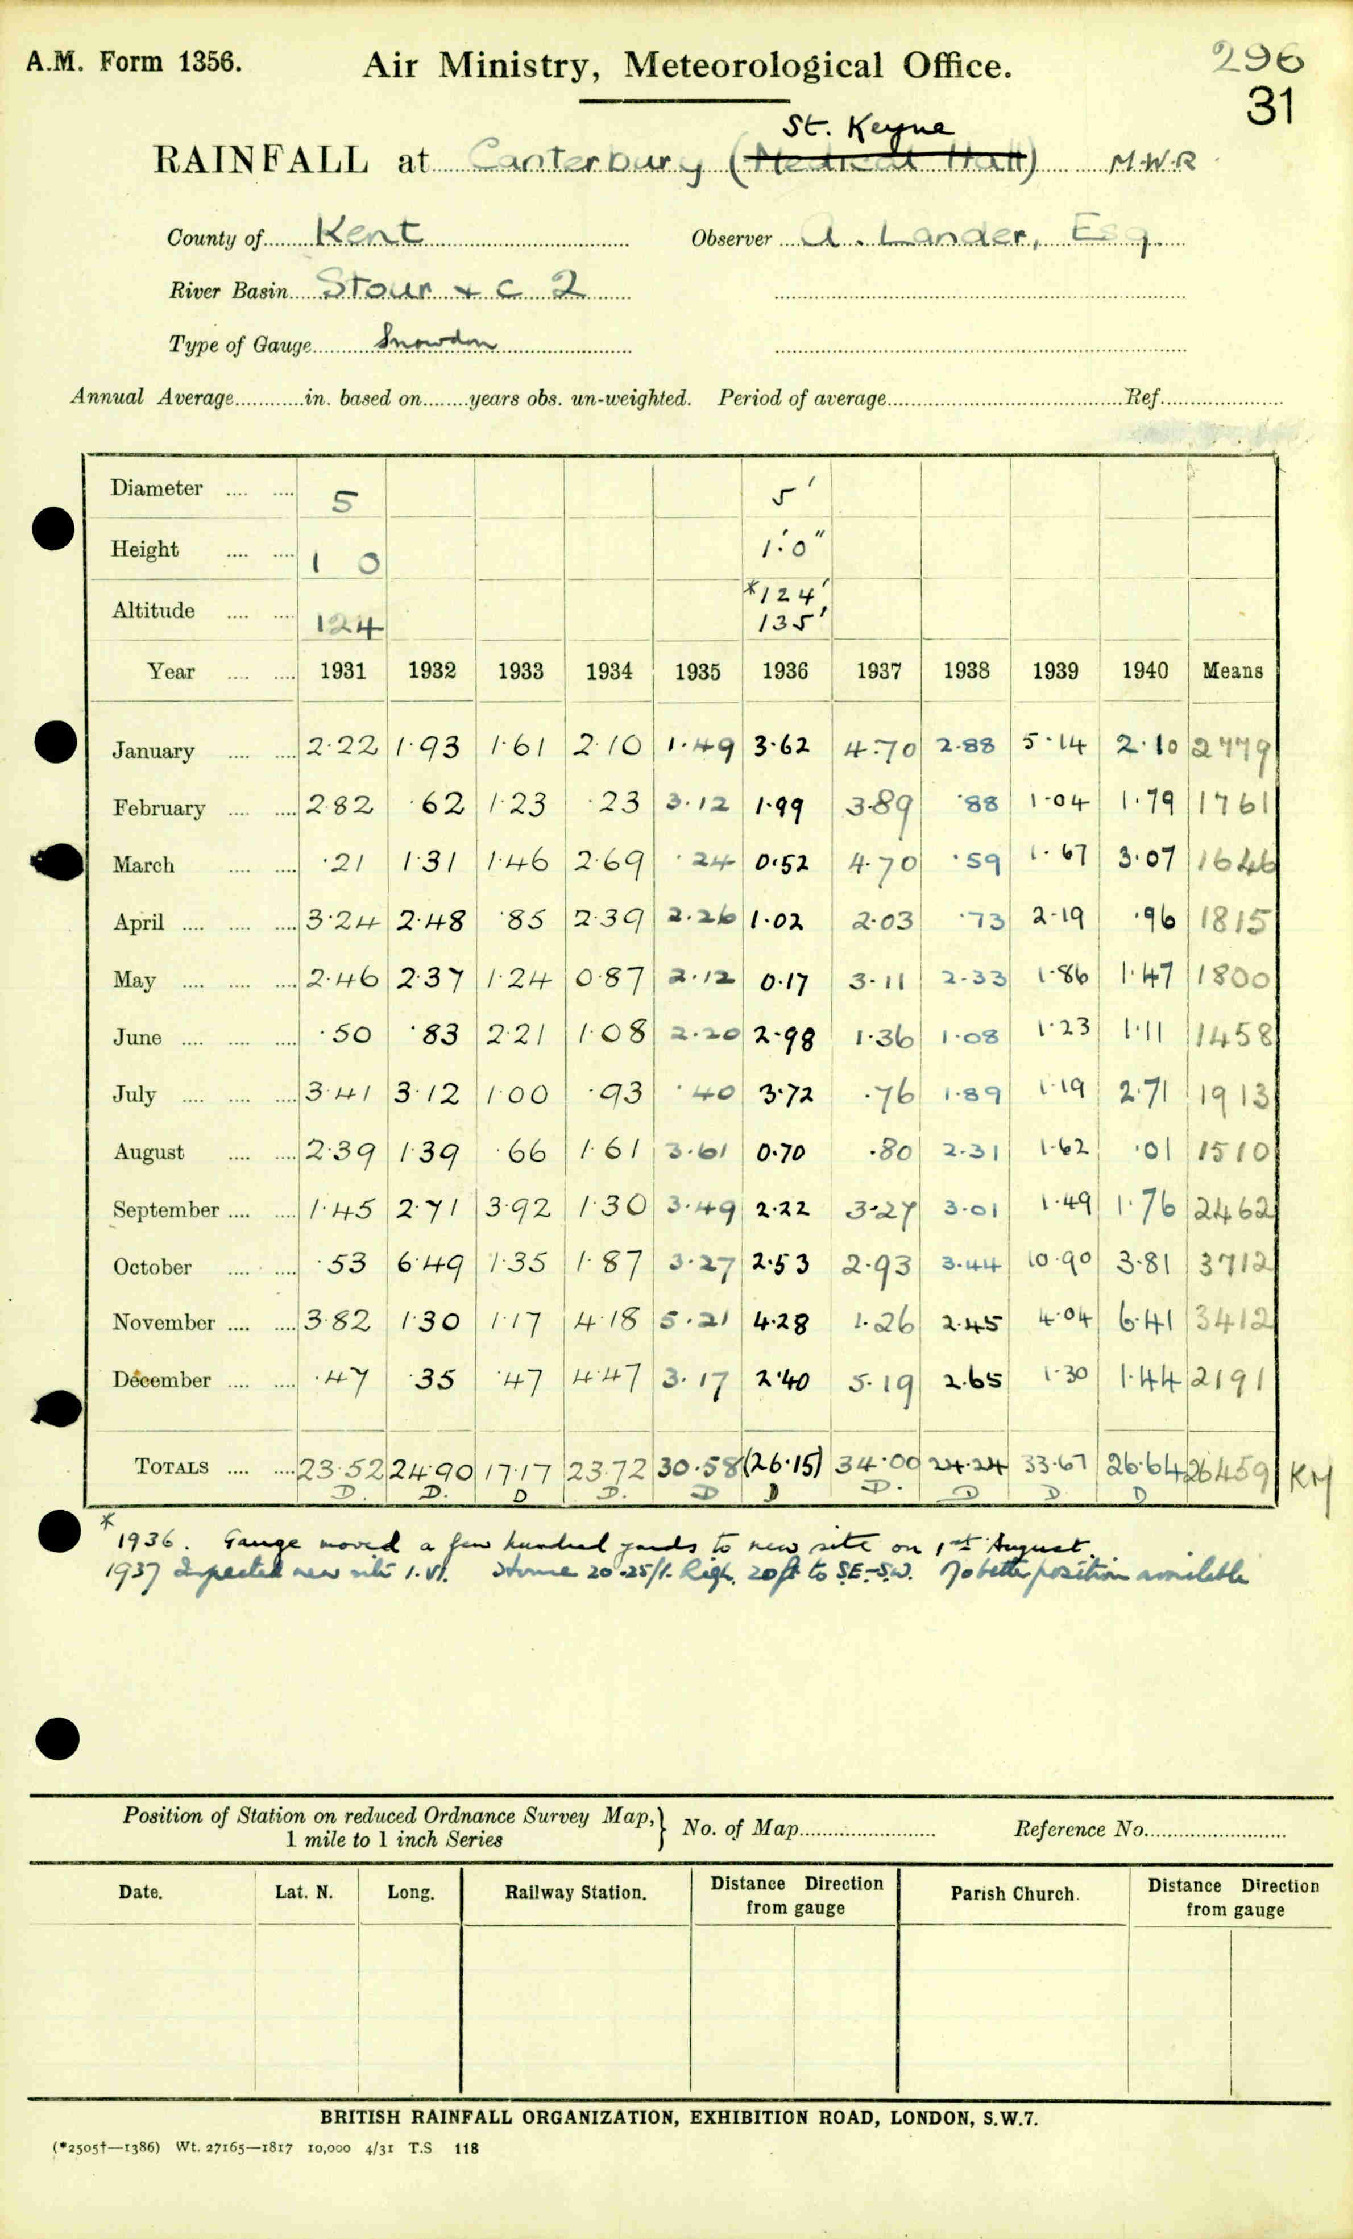 A.M. Form 1356. Air Ministry, Meteorological Office. 296
31
St. Keyne
RAINFALL at Canterbury (Medical Hall) M.W.R
County of Kent Observer A. Lander, Esq.
River Basin Stour & c 2
Type of Gauge Snowdon
Annual Average............in. based on........years obs. un-weighted. Period of average........................Ref..................
Diameter .... .... 5 5'
Height .... .... 1 0 1'.0"
Altitude .... .... 124 *124' 135'
Year .... .... 1931 1932 1933 1934 1935 1936 1937 1938 1939 1940 Means
January .... .... 2·22 1·93 1·61 2·10 1·49 3·62 4·70 2·88 5·14 2·10 2779
February .... .... 2·82 ·62 1·23 ·23 3·12 1·99 3·89 ·88 1·04 1·79 1761
March .... .... ·21 1·31 1·46 2·69 ·24 0·52 4·70 ·59 1·67 3·07 1646
April .... .... .... 3·24 2·48 ·85 2·39 2·26 1·02 2·03 ·73 2·19 ·96 1815
May .... .... .... 2·46 2·37 1·24 0·87 2·12 0·17 3·11 2·33 1·86 1·47 1800
June .... .... .... ·50 ·83 2·21 1·08 2·20 2·98 1·36 1·08 1·23 1·11 1458
July .... .... .... 3·41 3·12 1·00 ·93 ·40 3·72 ·76 1·89 1·19 2·71 1913
August .... .... 2·39 1·39 ·66 1·61 3·61 0·70 ·80 2·31 1·62 ·01 1510
September .... .... 1·45 2·71 3·92 1·30 3·49 2·22 3·27 3·01 1·49 1·76 2462
October .... .... ·53 6·49 1·35 1·87 3·27 2·53 2·93 3·44 10·90 3·81 3712
November .... .... 3·82 1·30 1·17 4·18 5·21 4·28 1·26 2·45 4·04 6·41 3412
December .... .... ·47 ·35 ·47 4·47 3·17 2·40 5·19 2·65 1·30 1·44 2191
TOTALS .... .... 23·52 24·90 17·17 23·72 30·58 (26·15) 34·00 24·24 33·67 26·64 26459 KM
D. D. D D. D D D. D D D
* 1936. Gauge moved a few hundred yards to new site on 1st August.
1937 Inspected new site 1.VI. House 20-25ft. high, 20ft to S.E.-S.W. No better position available
Position of Station on reduced Ordnance Survey Map,} No. of Map........................ Reference No.........................
1 mile to 1 inch Series
Date. Lat. N. Long. Railway Station. Distance Direction from gauge Parish Church. Distance Direction from gauge
BRITISH RAINFALL ORGANIZATION, EXHIBITION ROAD, LONDON, S.W.7.
(*2505†—1386) Wt. 27165—1817 10,000 4/31 T.S 118